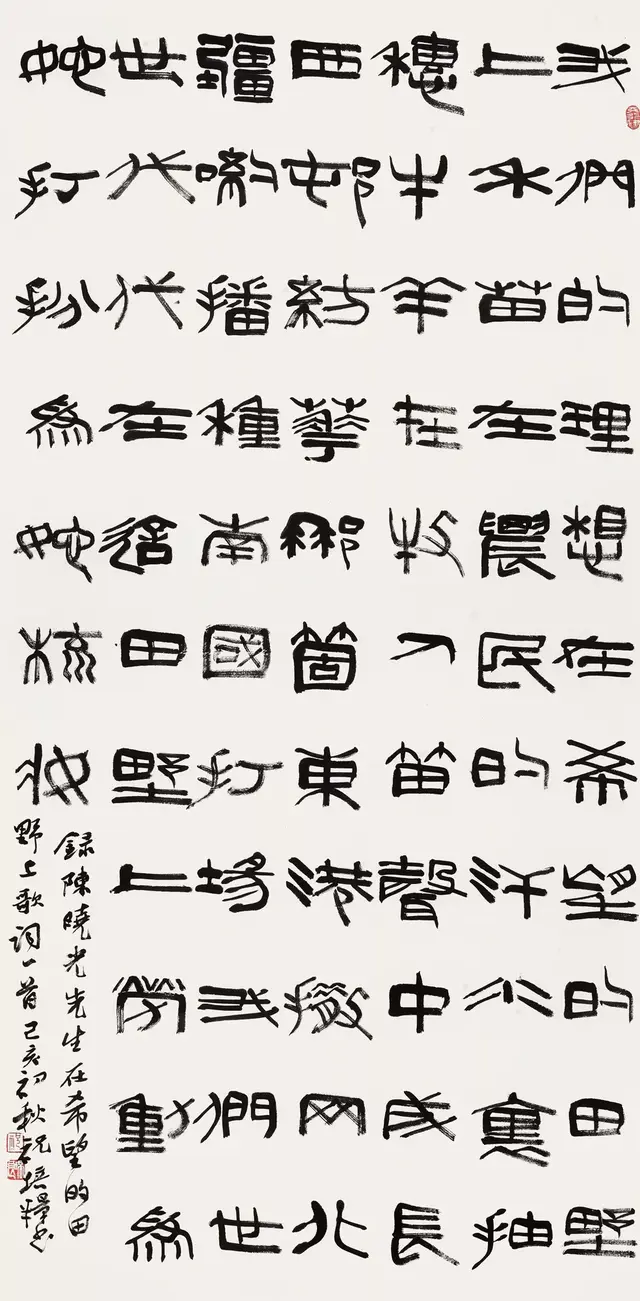 我們的理想在希望的田野
上禾苗在農民的汗水裏抽
穗牛羊在牧人笛聲中成長
西邨紡華那箇東港撒网北
疆喲播種南國打場我們世
世代代在這田野上勞動為
她打扮為她梳妝
錄陳曉光先生在希望的田
野上歌詞一首己亥初秋培糧書